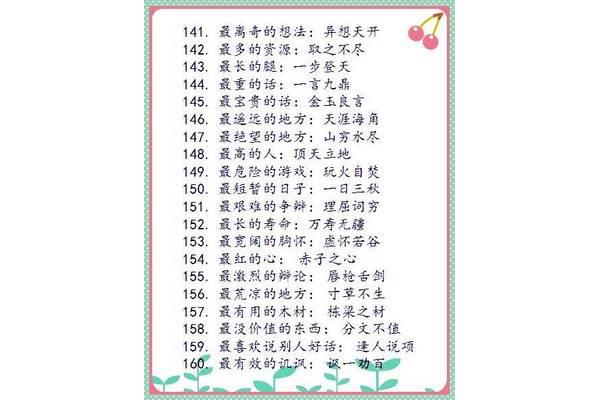 141. 最离奇的想法：异想天开
142. 最多的资源：取之不尽
143. 最长的腿：一步登天
144. 最重的话：一言九鼎
145. 最宝贵的话：金玉良言
146. 最遥远的地方：天涯海角
147. 最绝望的地方：山穷水尽
148. 最高的人：顶天立地
149. 最危险的游戏：玩火自焚
150. 最短暂的日子：一日三秋
151. 最艰难的争辩：理屈词穷
152. 最长的寿命：万寿无疆
153. 最宽阔的胸怀：虚怀若谷
154. 最红的心： 赤子之心
155. 最激烈的辩论：唇枪舌剑
156. 最荒凉的地方： 寸草不生
157. 最有用的木材： 栋梁之材
158. 最没价值的东西：分文不值
159. 最喜欢说别人好话：逢人说项
160. 最有效的讥讽： 讽一劝百